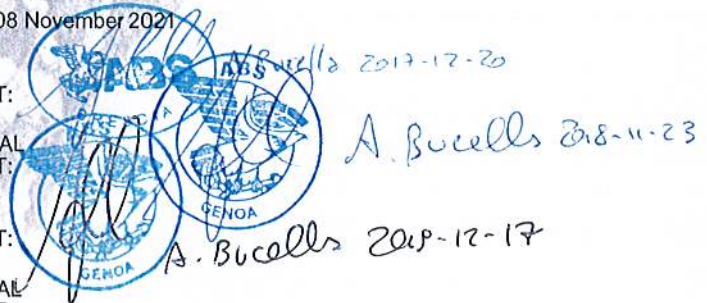 08 November 2021
ABS
A. Bucella 2017-12-20
T:
ABS
AL
T:
A. Bucella 2018-11-23
GENOA
T:
A. Bucella 2019-12-17
GENOA
AL